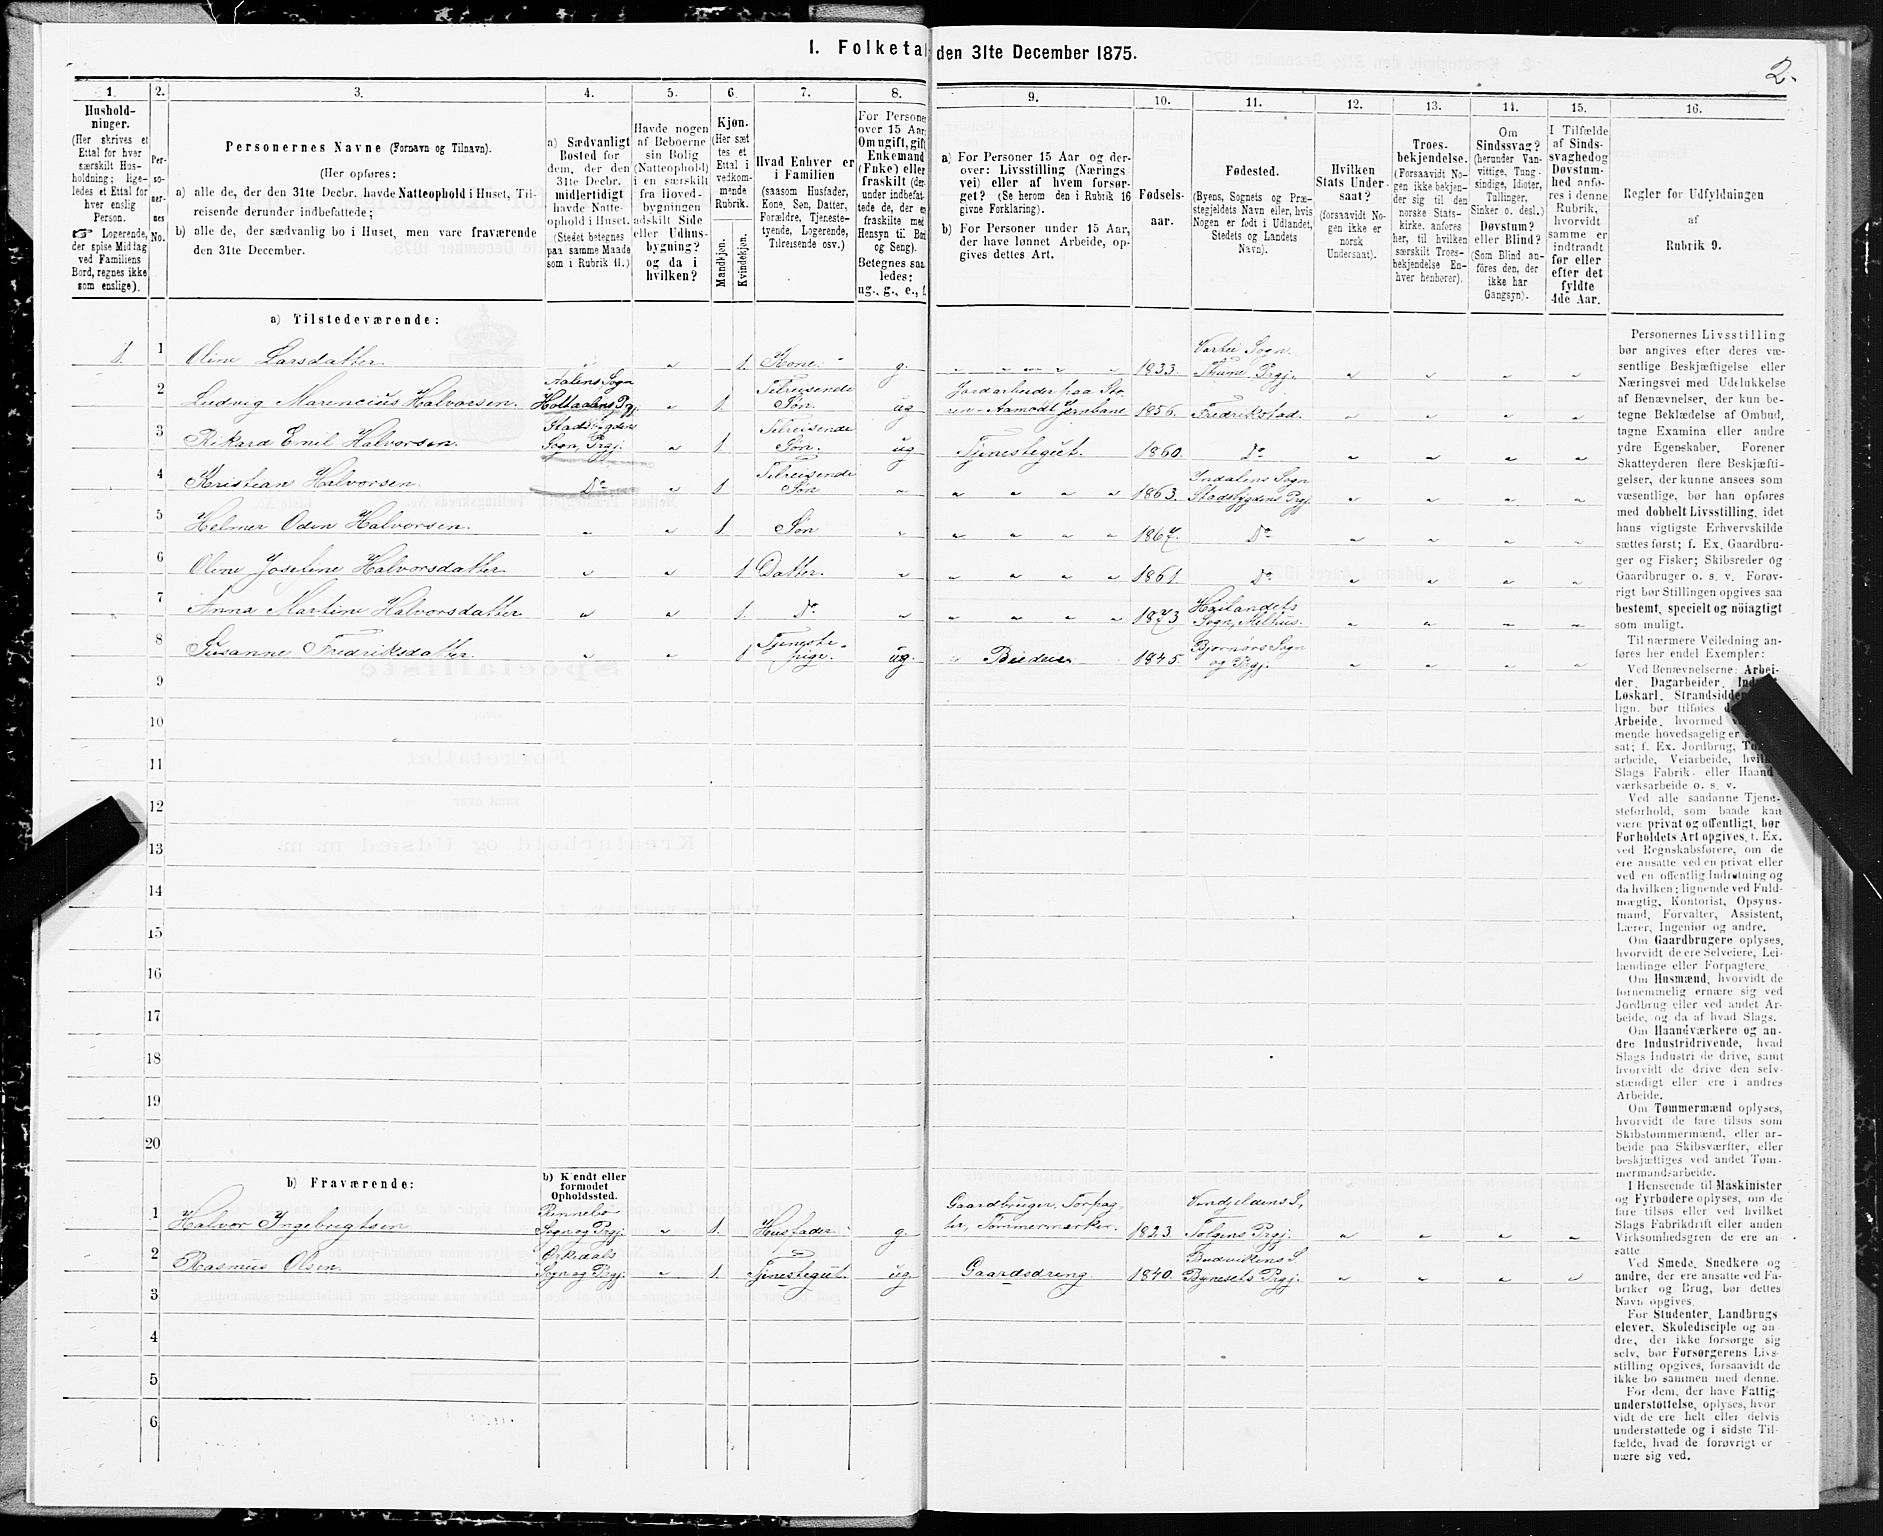 I. Folketal den 31te December 1875.
2.
1.
Hushold-
ninger.
(Her skrives et
Ettal for hver
særskilt Hus-
holdning; lige-
ledes et Ettal for
hver enslig
Person.
☞ Logerende,
der spise Middag
ved Familiens
Bord, regnes ikke
som enslige).
2.
Per-
so-
ner-
nes
No.
3.
Personernes Navne (Fornavn og Tilnavn).
(Her opføres:
a) alle de, der den 31te Decbr. havde Natteophold i Huset, Til-
reisende derunder indbefattede;
b) alle de, der sædvanlig bo i Huset, men vare fraværende
den 31te December.
4.
a) Sædvanligt
Bosted for
dem, der den
31te Decbr.
midlertidigt
havde Natte-
ophold i Huset.
(Stedet betegnes
paa samme Maade
som i Rubrik 11.)
5.
Havde nogen
af Beboerne
sin Bolig
(Natteophold)
i en særskilt
fra Hoved-
bygningen
adskilt Side
eller Udhus-
bygning?
og da i
hvilken?
6.
Kjøn.
(Her sæt
tes et
Ettal i
vedkom-
mende
Rubrik.
Mandkjøn.
Kvindekjøn.
7.
Hvad Enhver er
i Familien
(saasom Husfader,
Kone, Søn, Datter,
Forældre, Tjeneste-
tyende, Logerende,
Tilreisende osv.)
8.
For Persone
over 15 Aar:
Om ugift, gift
Enkemand
(Enke) eller
fraskilt (der-
under indbefat-
tede de, der er
fraskilte med
Hensyn til Bord
og Seng).
Betegnes saa-
ledes:
ug., g., e., f.
9.
a) For Personer 15 Aar og der-
over: Livsstilling (Nærings
vei) eller af hvem forsør-
get? (Se herom den i Rubrik 16
givne Forklaring).
b) For Personer under 15 Aar,
der have lønnet Arbeide, op-
gives dettes Art.
10.
Fødsels-
aar.
11.
Fødested.
(Byens, Sognets og Præ-
stegjeldets Navn eller, hvis
Nogen er født i Udlandet,
Stedets og Landets
Navn).
12.
Hvilken
Stats Under-
saat?
(forsaavidt No-
gen ikke er
norsk
Undersaat).
13.
Troes-
bekjendelse.
(Forsaavidt No-
gen ikke bekjen-
der sig til den
norske Stats-
kirke, anføres
her, til hvilken
særskilt Troes-
bekjendelse En-
hver henhører).
14.
Om
Sindssvag?
(herunder Van-
vittige, Tung-
sindige, Idioter,
Tullinger,
Sinker o. desl.)
Døvstum?
eller Blind?
(Som Blind an-
føres den, der
ikke har
Gangsyn).
15.
I Tilfælde
af Sinds-
svaghed og
Døvstum-
hed anfø-
res i denne
Rubrik,
hvorvidt
samme er
indtraadt
før eller
efter det
fyldte
4de Aar.
16.
Regler for Udfyldningen
af
Rubrik 9.
a) Tilstedeværende:
1. 1 Oline Larsdatter „ „ 1. Kone. g. „ „ „ „ 1833. Sogn. Thune Prgj. „ „ „ „
2 Ludvig Marencius Halvorsen. Aalens Sogn Holtaalens Prgj. „ 1. Tilreisende Søn. ug Jordarbeider paa Stø-
ren-Aamodt Jernbane 1856. Fredrikstad. „ „ „ „
3 Rikard Emil Halvorsen. Stadsbygdens Sogn, Prgj. „ 1. Tilreisende Søn. ug Tjenestegut. 1860. Do „ „ „ „
4 Kristian Halvorsen. Do „ 1 Tilreisende Søn „ „ „ „ „ 1863. Indalens Sogn Stadsbygdens Prgj. „ „ „ „
5 Helmer Odin Halvorsen. „ „ 1. Søn „ „ „ „ „ 1867. Do „ „ „ „
6 Oline Josefine Halvorsdatter. „ „ 1 Datter. „ „ „ „ „ 1861 Do „ „ „ „
7 Anna Martine Halvorsdatter „ „ 1. Do „ „ „ „ „ 1873 Høilandets Sogn, Melhus. „ „ „ „
8 Susanne Fredriksdatter. „ „ 1 Tjeneste-
pige. ug. „ 1845. Bjørnørs Sogn og Prgj. „ „ „ „
9
10
11
12
13
14
15
16
17
18
19
20
b) Fraværende:
b) Kjendt eller
formodet
Opholdssted.
1 Halvor Ingebrigtsen Rennebo Sogn og Prgj. „ 1. Husfader g. Gaardbruger, Forpag-
ter, Tømmermærker. 1823. Vingeldens S, Tolgens Prgj. „ „ „ „
2 Rasmus Olsen. Orkedals Sogn og Prgj. „ 1. Tjenestegut. ug Gaardsdreng 1840. Budvikens S. Bynesets Prgj. „ „ „ „
3
4
5
6
Personernes Livsstilling
bør angives efter deres væ-
sentlige Beskjæftigelse eller
Næringsvei med Udelukkelse
af Benævnelser, der kun be-
tegne Beklædelse af Ombud,
tagne Examina eller andre
ydre Egenskaber. Forener
Skatteyderen flere Beskjæfti-
gelser, der kunne ansees som
væsentlige, bør han opføres
med dobbelt Livsstilling, idet
hans vigtigste Erhvervskilde
sættes først; f. Ex. Gaardbru-
ger og Fisker; Skibsreder og
Gaardbruger o. s. v. Forøv-
rigt bør Stillingen opgives saa
bestemt, specielt og nöiagtigt
som muligt.
Til nærmere Veiledning an-
føres her endel Exempler:
Ved Benævnelserne: Arbei-
der, Dagarbeider,
Løskarl, Strandsidder
lign. bør tilføies
Arbeide, hvormed
mende hovedsagelig er
sat; f. Ex. Jordbrug,
arbeide, Veiarbeide,
Slags Fabrik- eller Haand-
værksarbeide o. s. v.
Ved alle saadanne Tjene-
steforhold, som baade kan
være privat og offentligt, bør
Forholdets Art opgives, f. Ex.
ved Regnskabsførere, om de
ere ansatte ved en privat eller
ved en offentlig Indretning og
da hvilken; lignende ved Fuld-
mægtig, Kontorist, Opsyns-
mand, Forvalter, Assistent,
Lærer, Ingeniør og andre.
Om Gaardbrugere oplyses,
hvorvidt de ere Selveiere, Lei-
lændinge eller Forpagtere.
Om Husmænd, hvorvidt de
fornemmelig ernære sig ved
Jordbrug eller ved andet Ar-
beide, og da af hvad Slags.
Om Haandværkere og an-
dre Industridrivende, hvad
Slags Industri de drive, samt
hvorvidt de drive den selv-
stændigt eller ere i andres
Arbeide.
Om Tømmermænd oplyses,
hvorvidt de fare tilsøs som
Skibstømmermænd, eller ar-
beide paa Skibsværfter, eller
beskjæftiges ved andet Tøm-
mermandsarbeide.
I Henseende til Maskinister
og Fyrbødere oplyses, om de
fare tilsøs eller ved hvilket
Slags Fabrikdrift eller anden
Virksomhedsgren de ere an-
satte
Ved Smede, Snedkere og
andre, der ere ansatte ved Fa-
briker og Brug, bør dettes
Navn opgives.
For Studenter, Landbrugs
elever, Skoledisciple og an-
dre, der ikke forsørge sig
selv, bør Forsørgerens Livs-
stilling opgives, forsaavidt de
ikke bo sammen med denne.
For dem, der have Fattig-
understøttelse, oplyses, hvor
vidt de ere helt eller delvis
understøttede og i sidste Til-
fælde, hvad de forøvrigt er
nære sig ved.